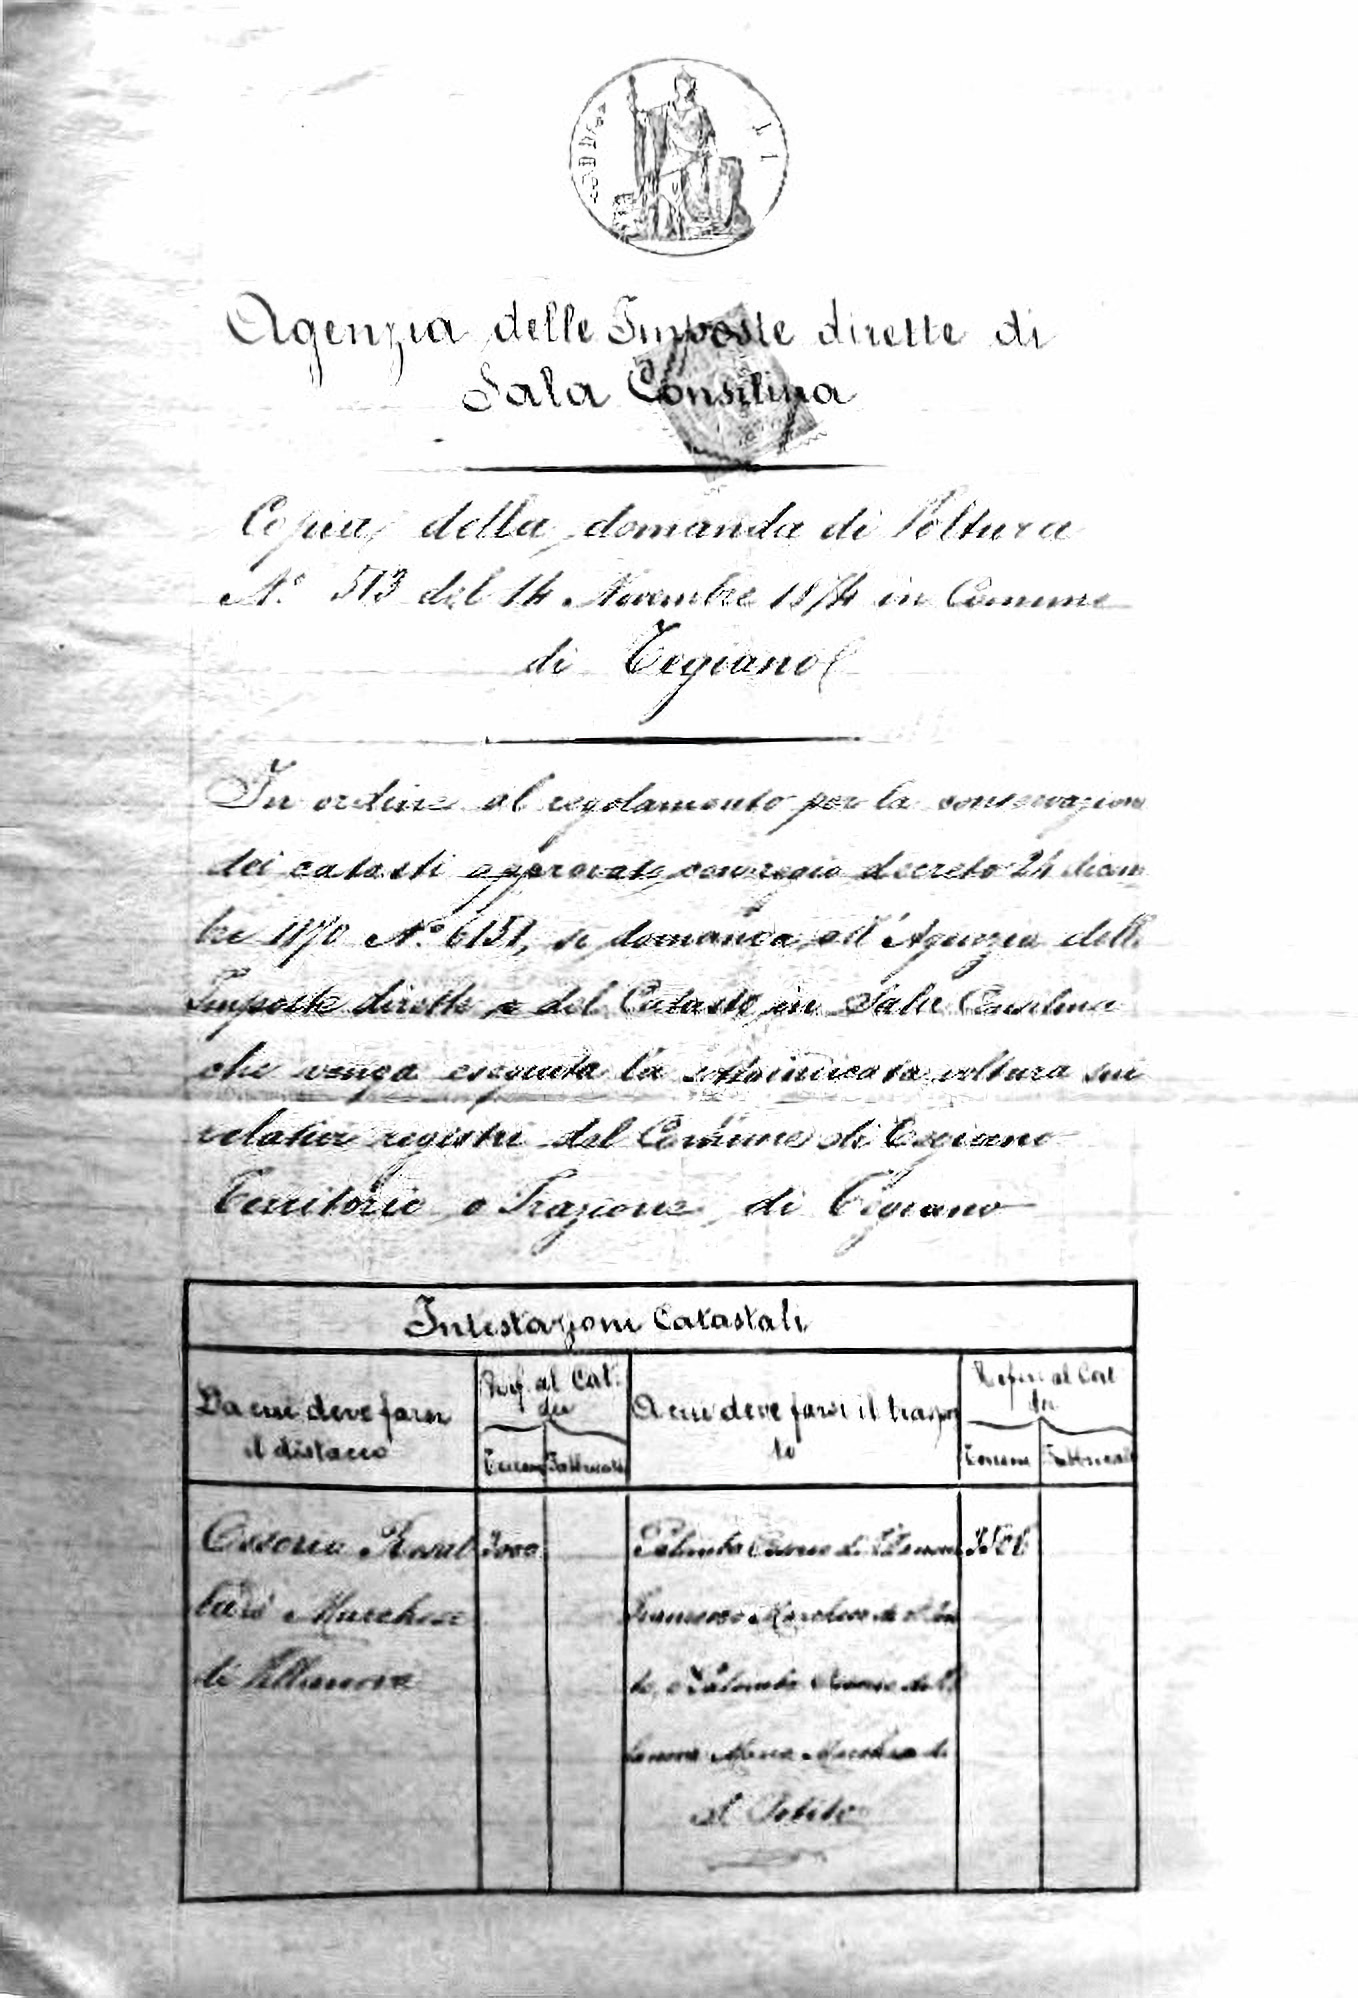 Agenzia delle Imposte dirette di
Sala Consilina
Copia della domanda di Voltura
N.° 513 del 14 Novembre 1874 in Comune
di Tegiano
In ordine al regolamento per la conservazion
dei catasti approvato con regio decreto 24 dicem
bre 1870 N.° 6151, si domanda all'Agenzia delle
Imposte dirette e del Catasto in Sala Consilina
che venga eseguita la sottoindicata voltura sui
relativi registri del Comune di Tegiano
Territorio o Frazione di Tegiano
Intestazioni Catastali
Da cui deve farsi
il distacco
Rif. al Cat.
dei
Terreni Fabbricati
A cui deve farsi il traspor
to
Rifer. al Cat
dei
Terreni Fabbricati
Ossorio
Marchese
di Villanova
3000
Palomba Ossorio di Villanova
Francesco Marchese de
e Palomba Ossorio di Vil
lanova Maria Marchesa di